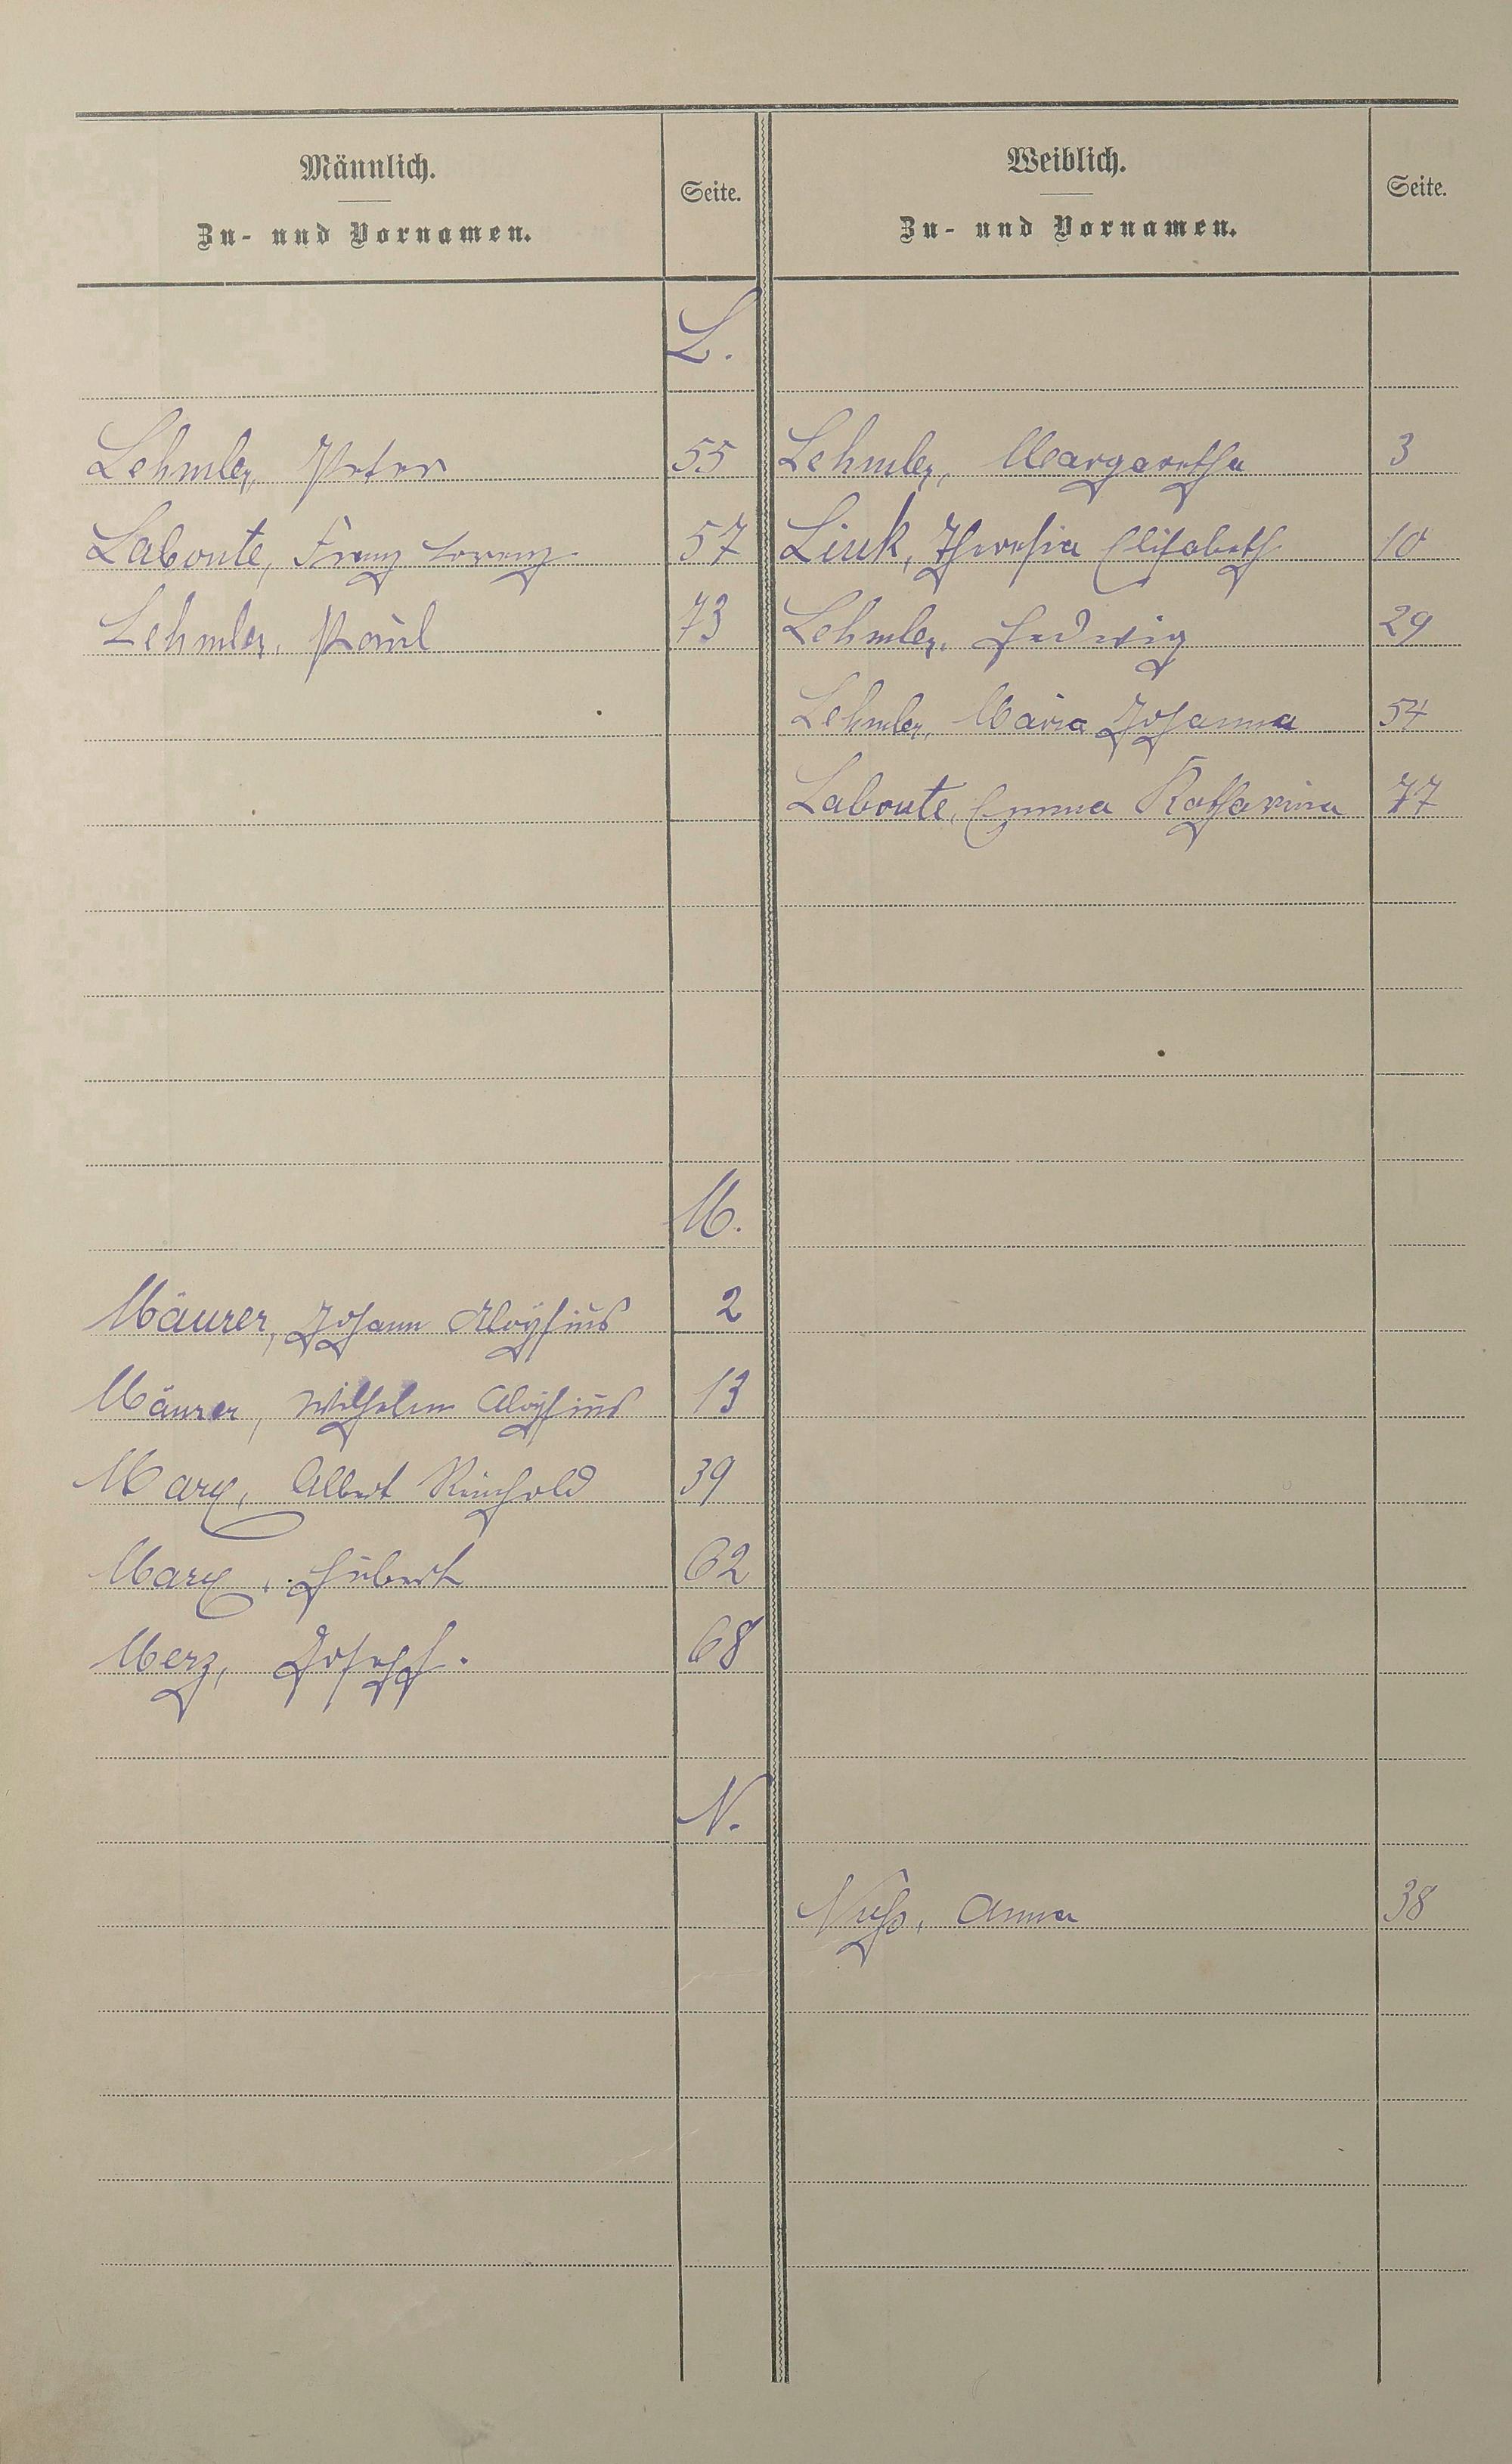 Männlich.
Zu- und Vornamen.
Seite.
Weiblich.
Zu- und Vornamen.
Seite.
L.
Lehmler, Peter 55 Lehmler, Margaretha 3
Laboute, Franz Lorenz 57 Link, Theresia Elisabeth 10
Lehmler, Paul 73 Lehmler, Hedwig 29
Lehmler, Maria Johanna 54
Laboute, Emma Katharina 77
M.
Mäurer, Johann Aloysius 2
Mäurer, Wilhelm Aloysius 13
Marx, Albert Reinhold 39
Marx, Hubert 62
Merz, Joseph. 68
N.
Nuß, Anna 38